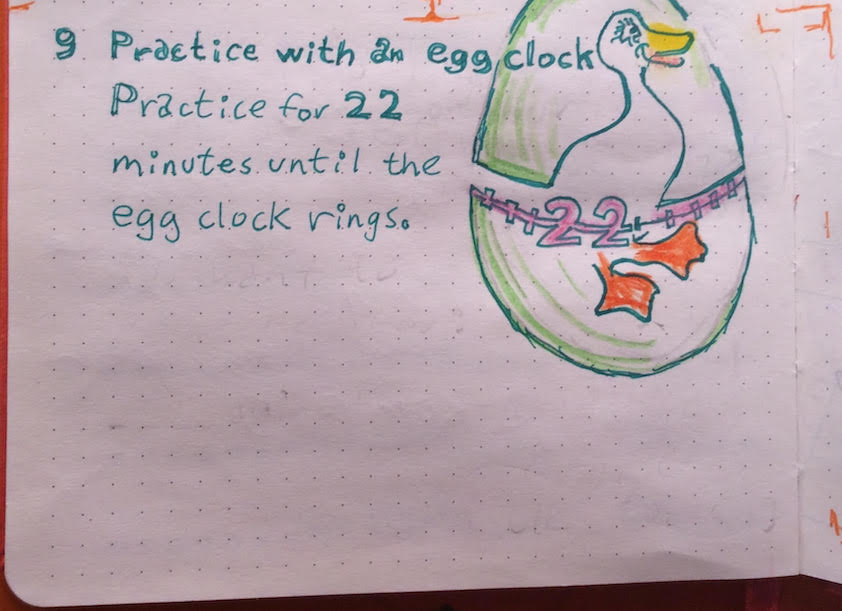 9 Practice with an egg clock
Practice for 22
minutes until the
egg clock rings.
22